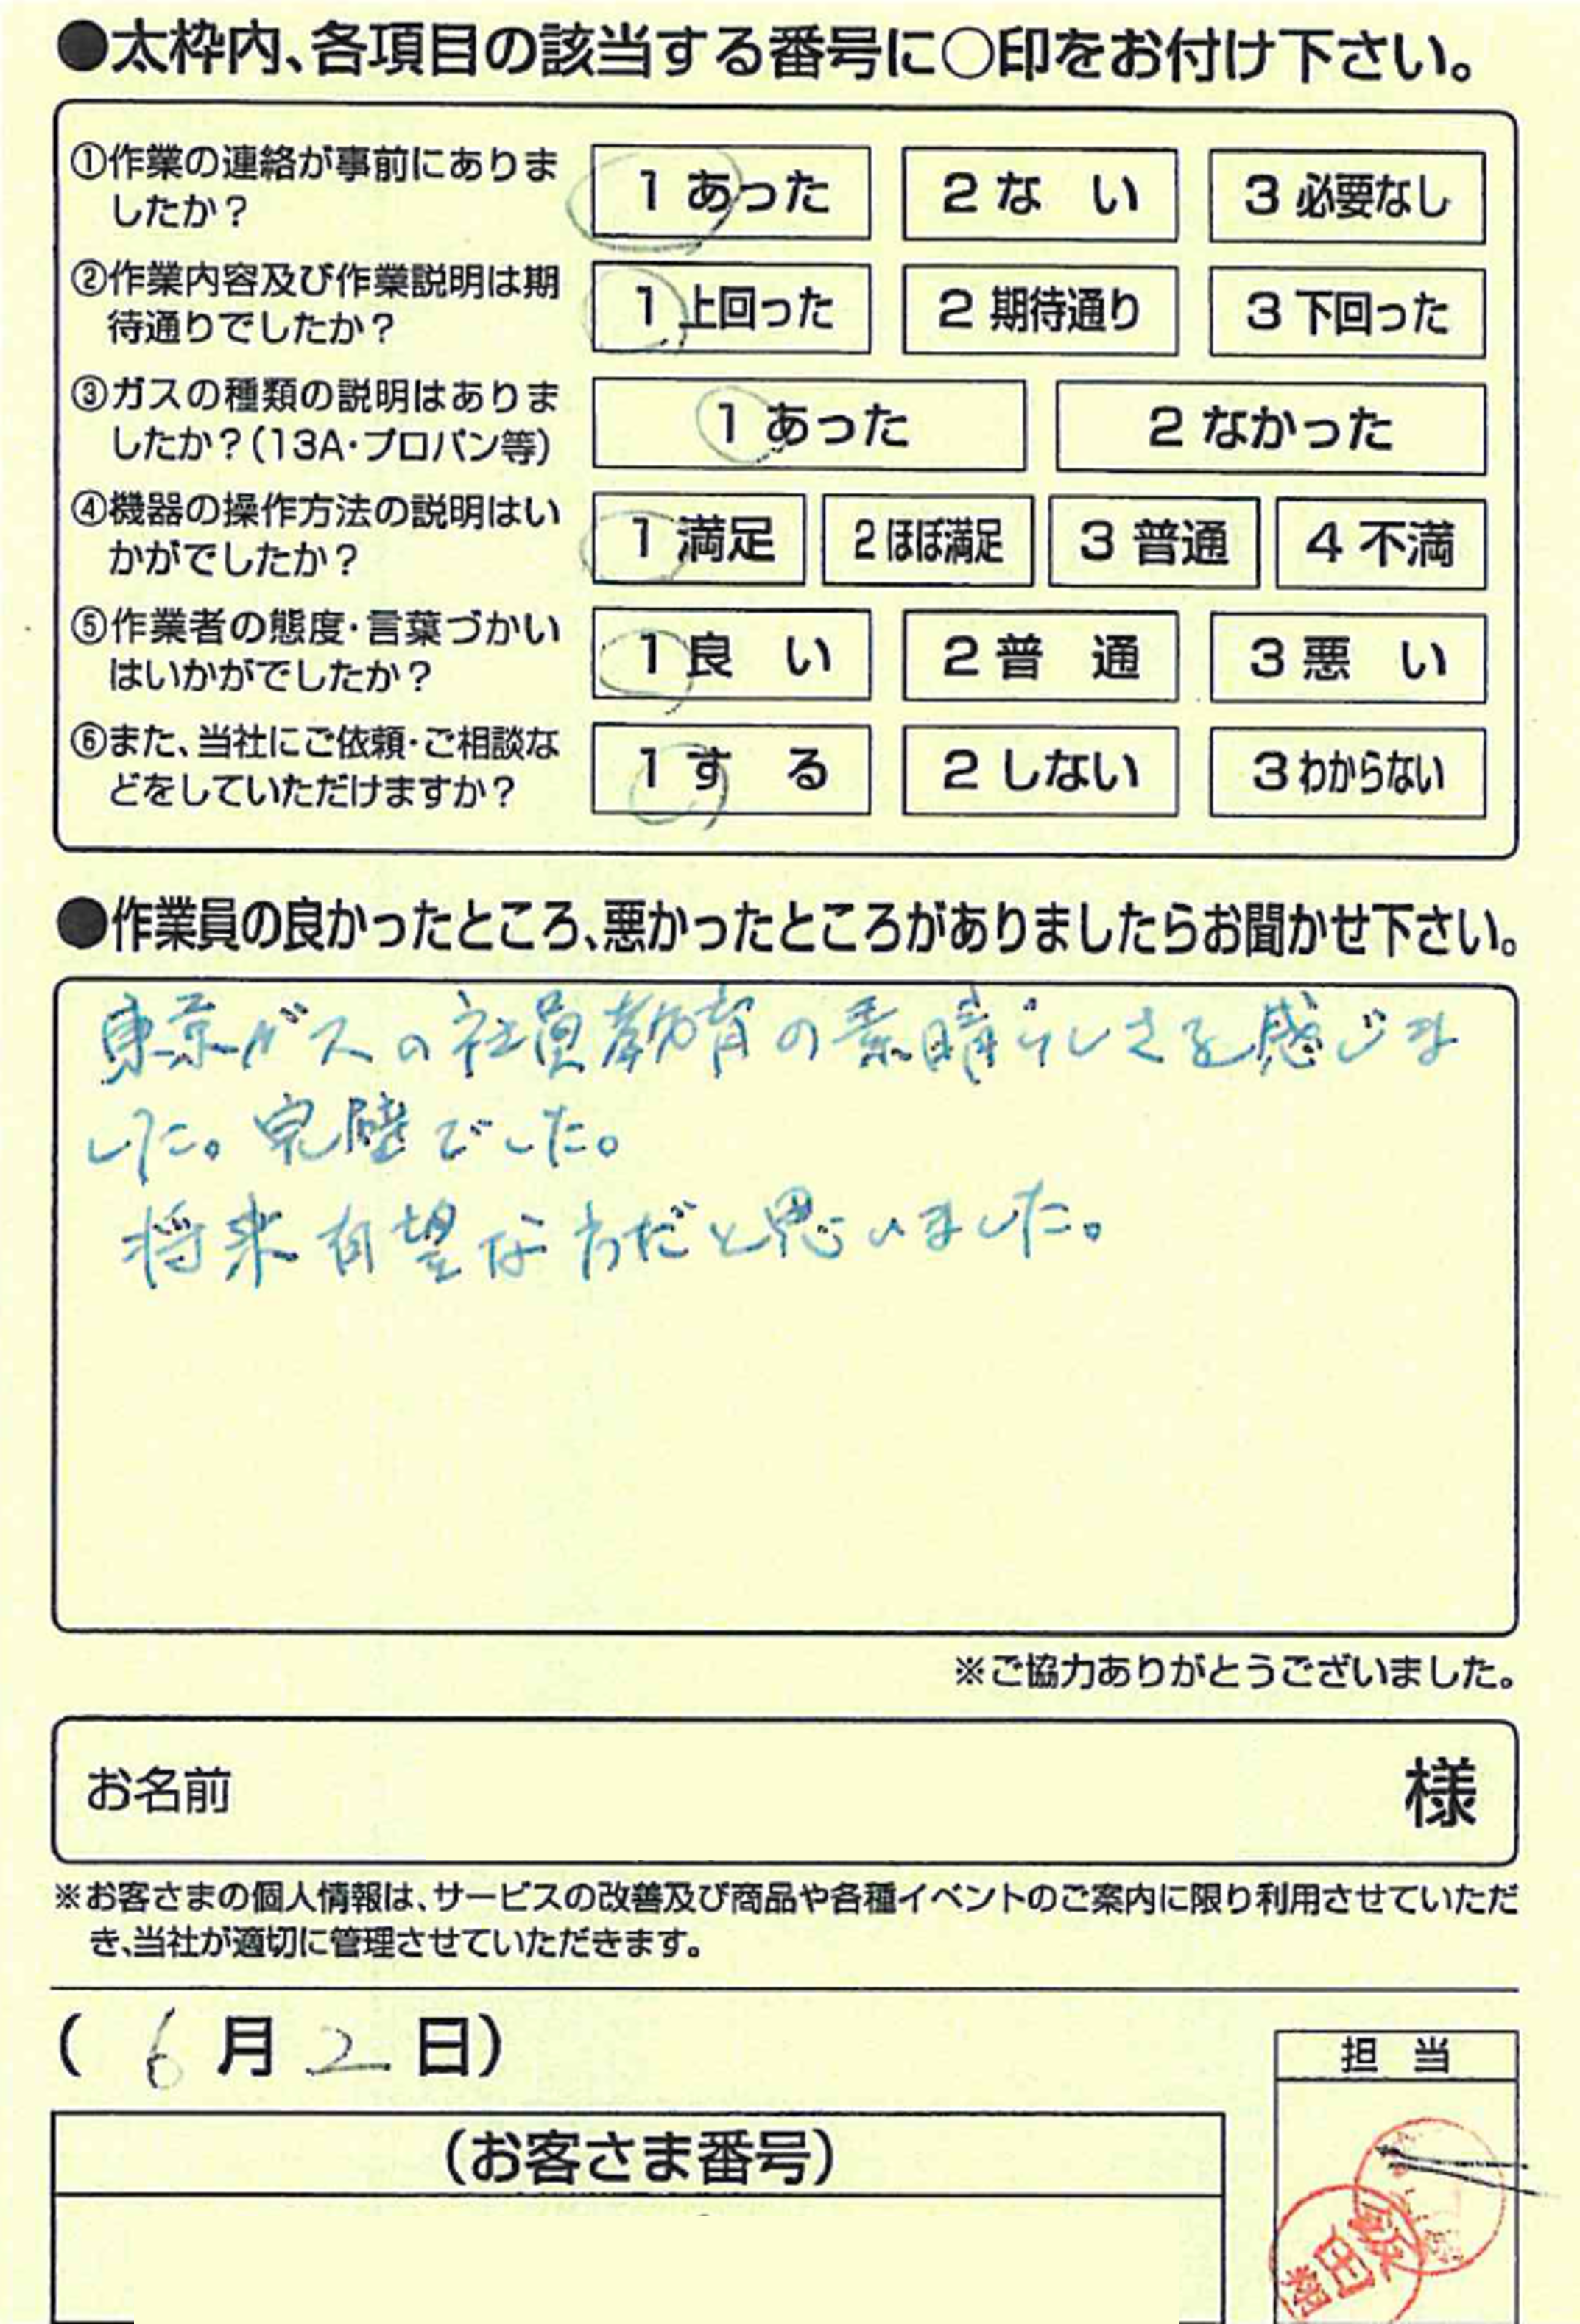 ●太枠内、各項目の該当する番号に○印をお付け下さい。
①作業の連絡が事前にありま
したか？
1 あった 2 ない 3 必要なし
②作業内容及び作業説明は期
待通りでしたか？
1 上回った 2 期待通り 3 下回った
③ガスの種類の説明はありま
したか？(13A・プロパン等)
1 あった 2 なかった
④機器の操作方法の説明はい
かがでしたか？
1 満足 2 ほぼ満足 3 普通 4 不満
⑤作業者の態度・言葉づかい
はいかがでしたか？
1 良い 2 普通 3 悪い
⑥また、当社にご依頼・ご相談な
どをしていただけますか？
1 する 2 しない 3 わからない
●作業員の良かったところ、悪かったところがありましたらお聞かせ下さい。
東京ガスの社員教育の素晴らしさを感じま
した。完璧でした。
将来有望な方だと思いました。
※ご協力ありがとうございました。
お名前 様
※お客さまの個人情報は、サービスの改善及び商品や各種イベントのご案内に限り利用させていただ
き、当社が適切に管理させていただきます。
( 6 月 2 日)
担当
(お客さま番号)
飯田